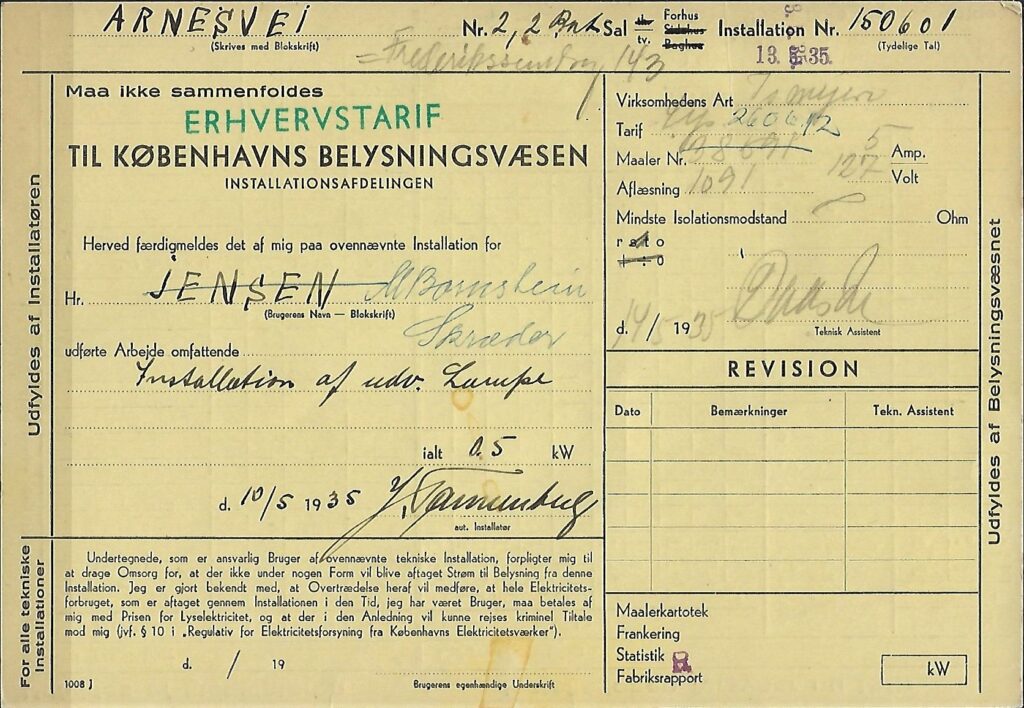 ARNESVEJ Nr. 2, 2 Sal th. tv. Forhus Sidehus Baghus Installation Nr. 150601
(Skrives med Blokskrift) (Tydelige Tal)
= Frederikssundsvej 143
13. 5. 35.
Maa ikke sammenfoldes
ERHVERVSTARIF
TIL KØBENHAVNS BELYSNINGSVÆSEN
INSTALLATIONSAFDELINGEN
Herved færdigmeldes det af mig paa ovennævnte Installation for
Hr. JENSEN M Bornstein
(Brugerens Navn — Blokskrift)
Skræder
udførte Arbejde omfattende
Installation af udv. Lampe
ialt 0.5 kW
d. 10/5 1935 J. Tannenberg
aut. Installatør
Udfyldes af Installatøren
Virksomhedens Art
Tarif 260612
Maaler Nr. 5 Amp.
Aflæsning 1091 127 Volt
Mindste Isolationsmodstand Ohm
d. 14/5 1935
Teknisk Assistent
REVISION
Dato Bemærkninger Tekn. Assistent
Udfyldes af Belysningsvæsnet
For alle tekniske
Installationer
Undertegnede, som er ansvarlig Bruger af ovennævnte tekniske Installation, forpligter mig til
at drage Omsorg for, at der ikke under nogen Form vil blive aftaget Strøm til Belysning fra denne
Installation. Jeg er gjort bekendt med, at Overtrædelse heraf vil medføre, at hele Elektricitets-
forbruget, som er aftaget gennem Installationen i den Tid, jeg har været Bruger, maa betales af
mig med Prisen for Lyselektricitet, og at der i den Anledning vil kunne rejses kriminel Tiltale
mod mig (jvf. § 10 i „Regulativ for Elektricitetsforsyning fra Københavns Elektricitetsværker").
d. / 19
1008 J
Brugerens egenhændige Underskrift
Maalerkartotek
Frankering
Statistik R
Fabriksrapport
kW